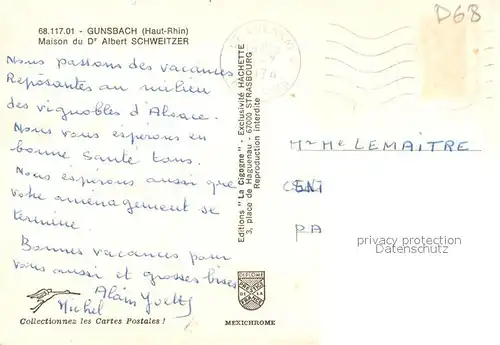 68.117.01 - GUNSBACH (Haut-Rhin)
Maison du Dr Albert SCHWEITZER
D68
Nous passons des vacances
Reposantes au milieu
des vignobles d'Alsace.
Nous vous espérons en
bonne santé tous.
Nous espérons aussi que
votre aménagement se
termine.
Bonnes vacances pour
vous aussi et grosses bises
Alain Yvette
Michel
Collectionnez les Cartes Postales !
Editions "La Cigogne" - Exclusivité HACHETTE
3, place de Haguenau - 67000 STRASBOURG
Reproduction interdite
DIPLOME
MEXICHROME
Mr Me LEMAITRE
PA
privacy protection
Datenschutz